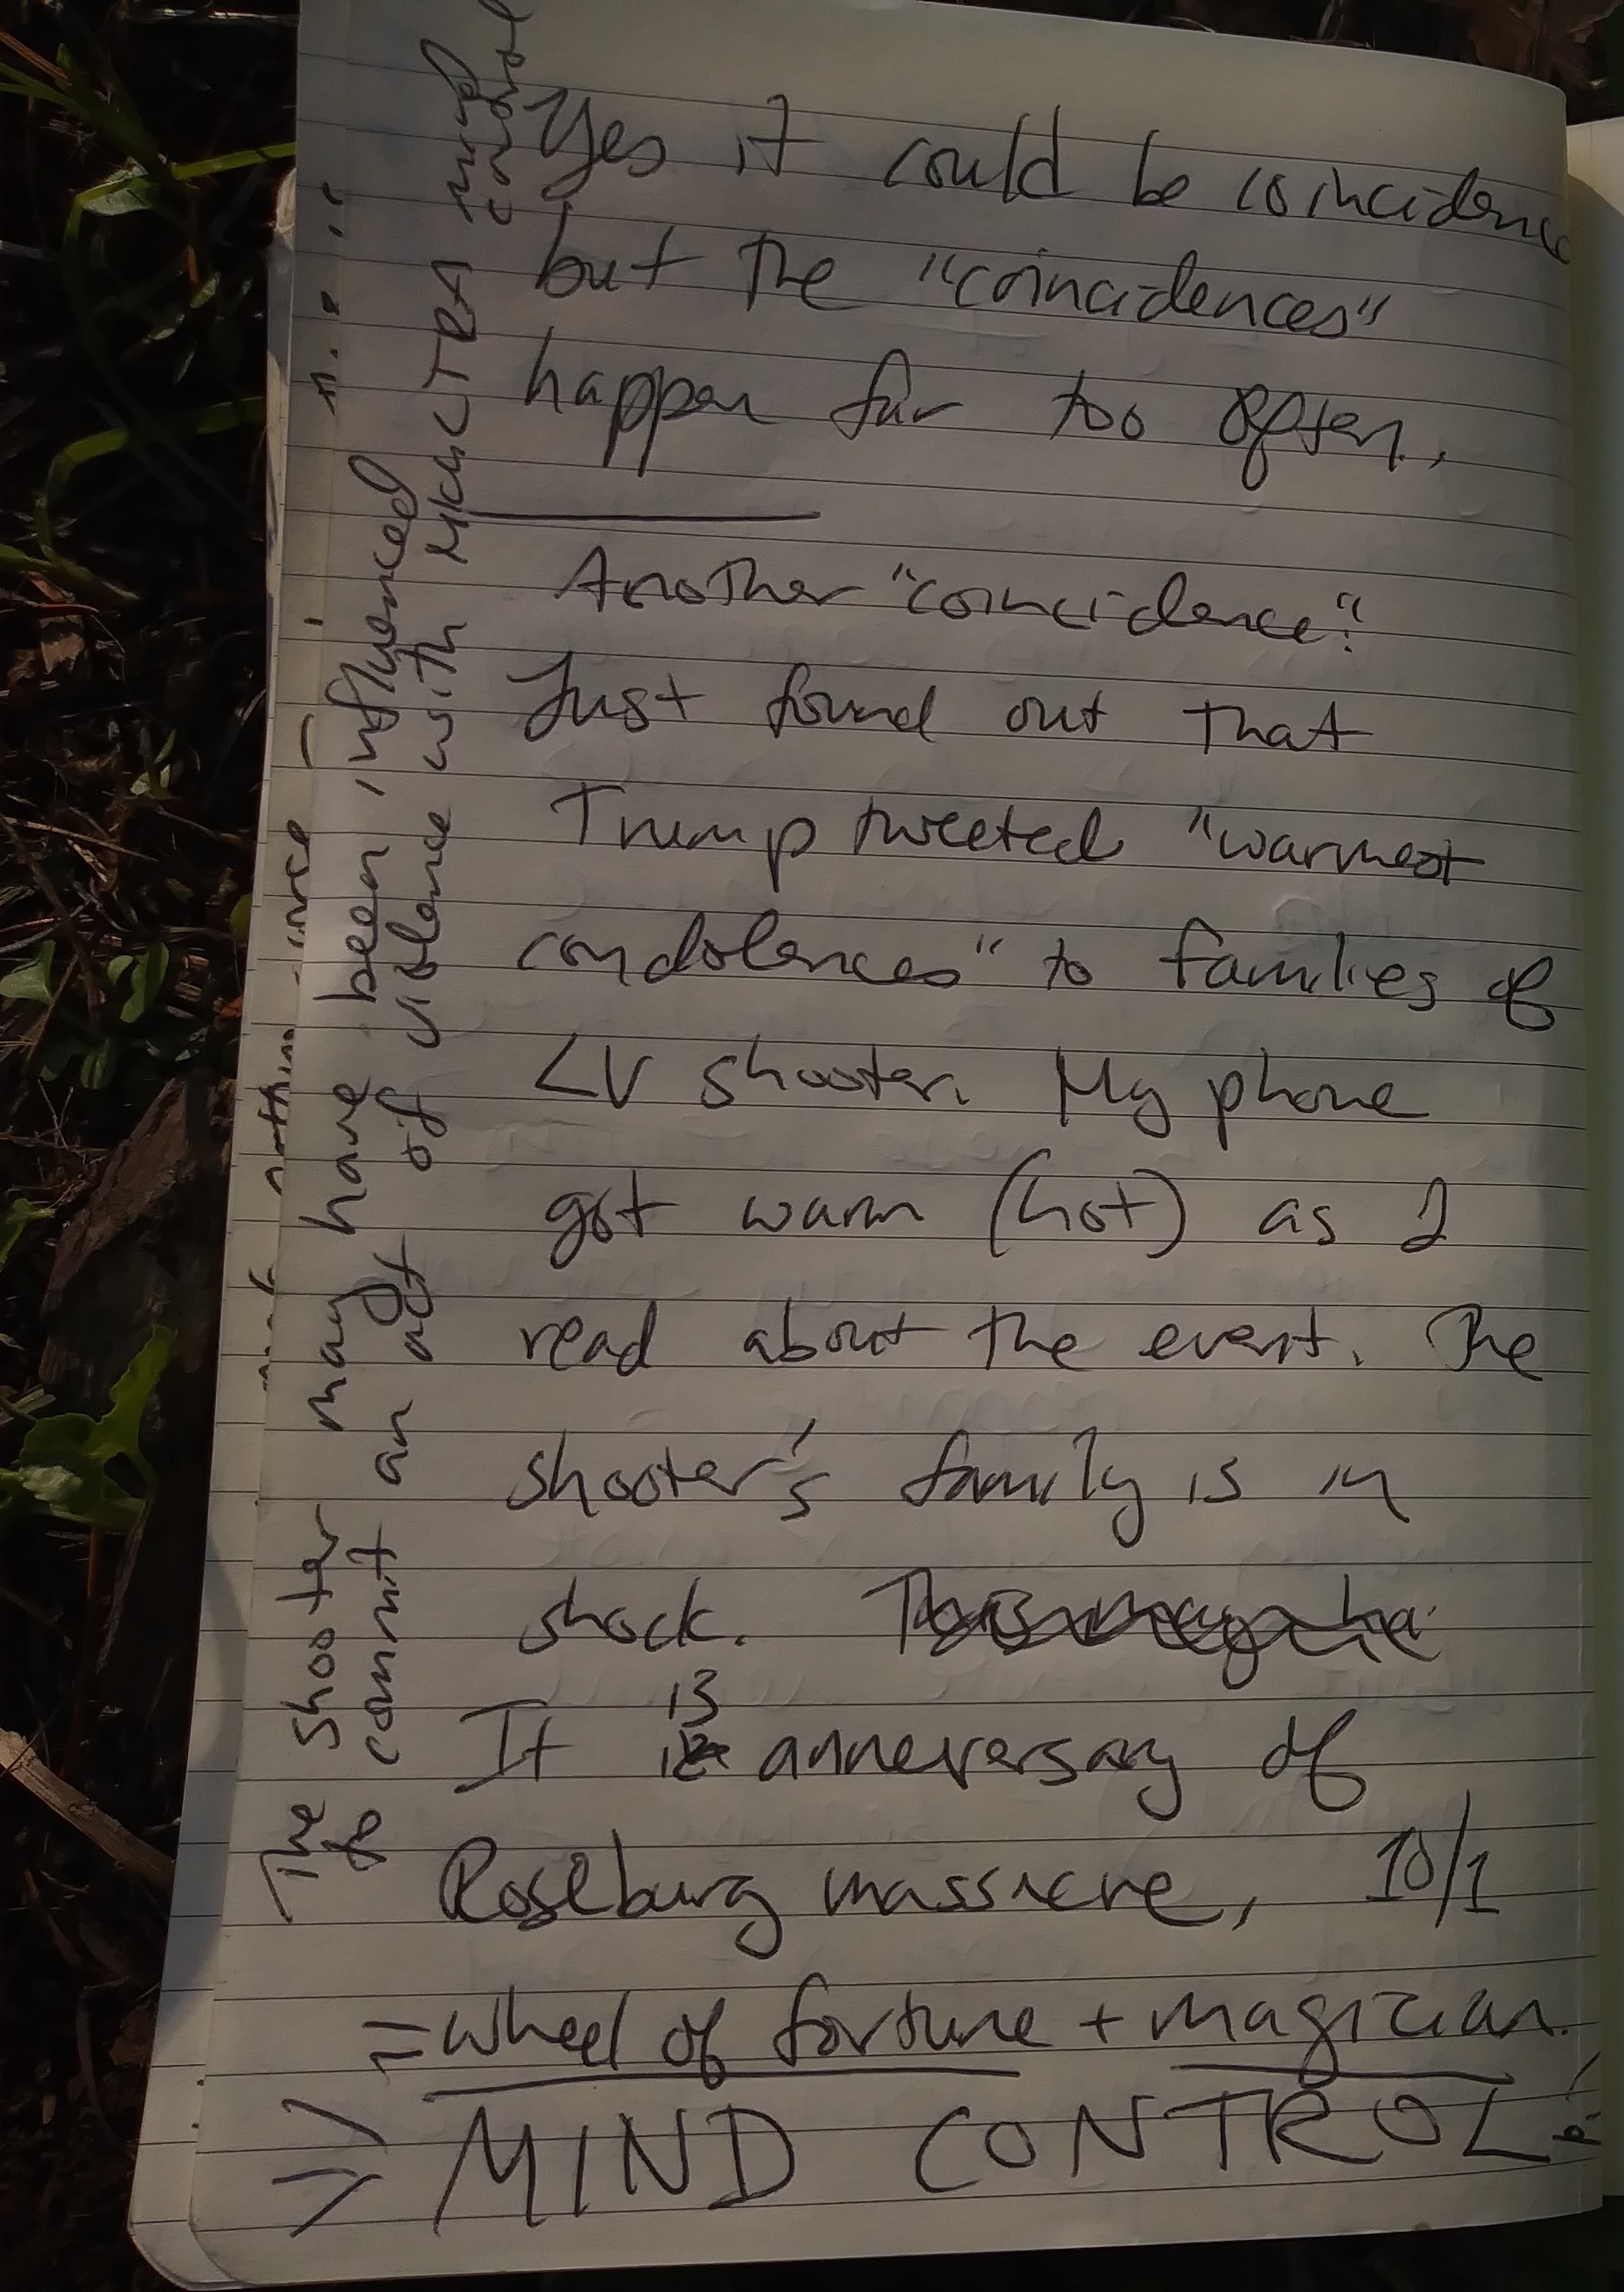 Yes it could be coincidence
but the "coincidences"
happen far too often.
Another "coincidence":
Just found out that
Trump tweeted "warmest
condolences" to families of
LV shooter. My phone
got warm (hot) as I
read about the event. The
shooter's family is in
shock.
It is anneversary of
Roseburg massacre, 10/1
= wheel of fortune + magician.
=> MIND CONTROL
The shooter may have been influenced
to commit an act of violence with MKULTRA mind
control